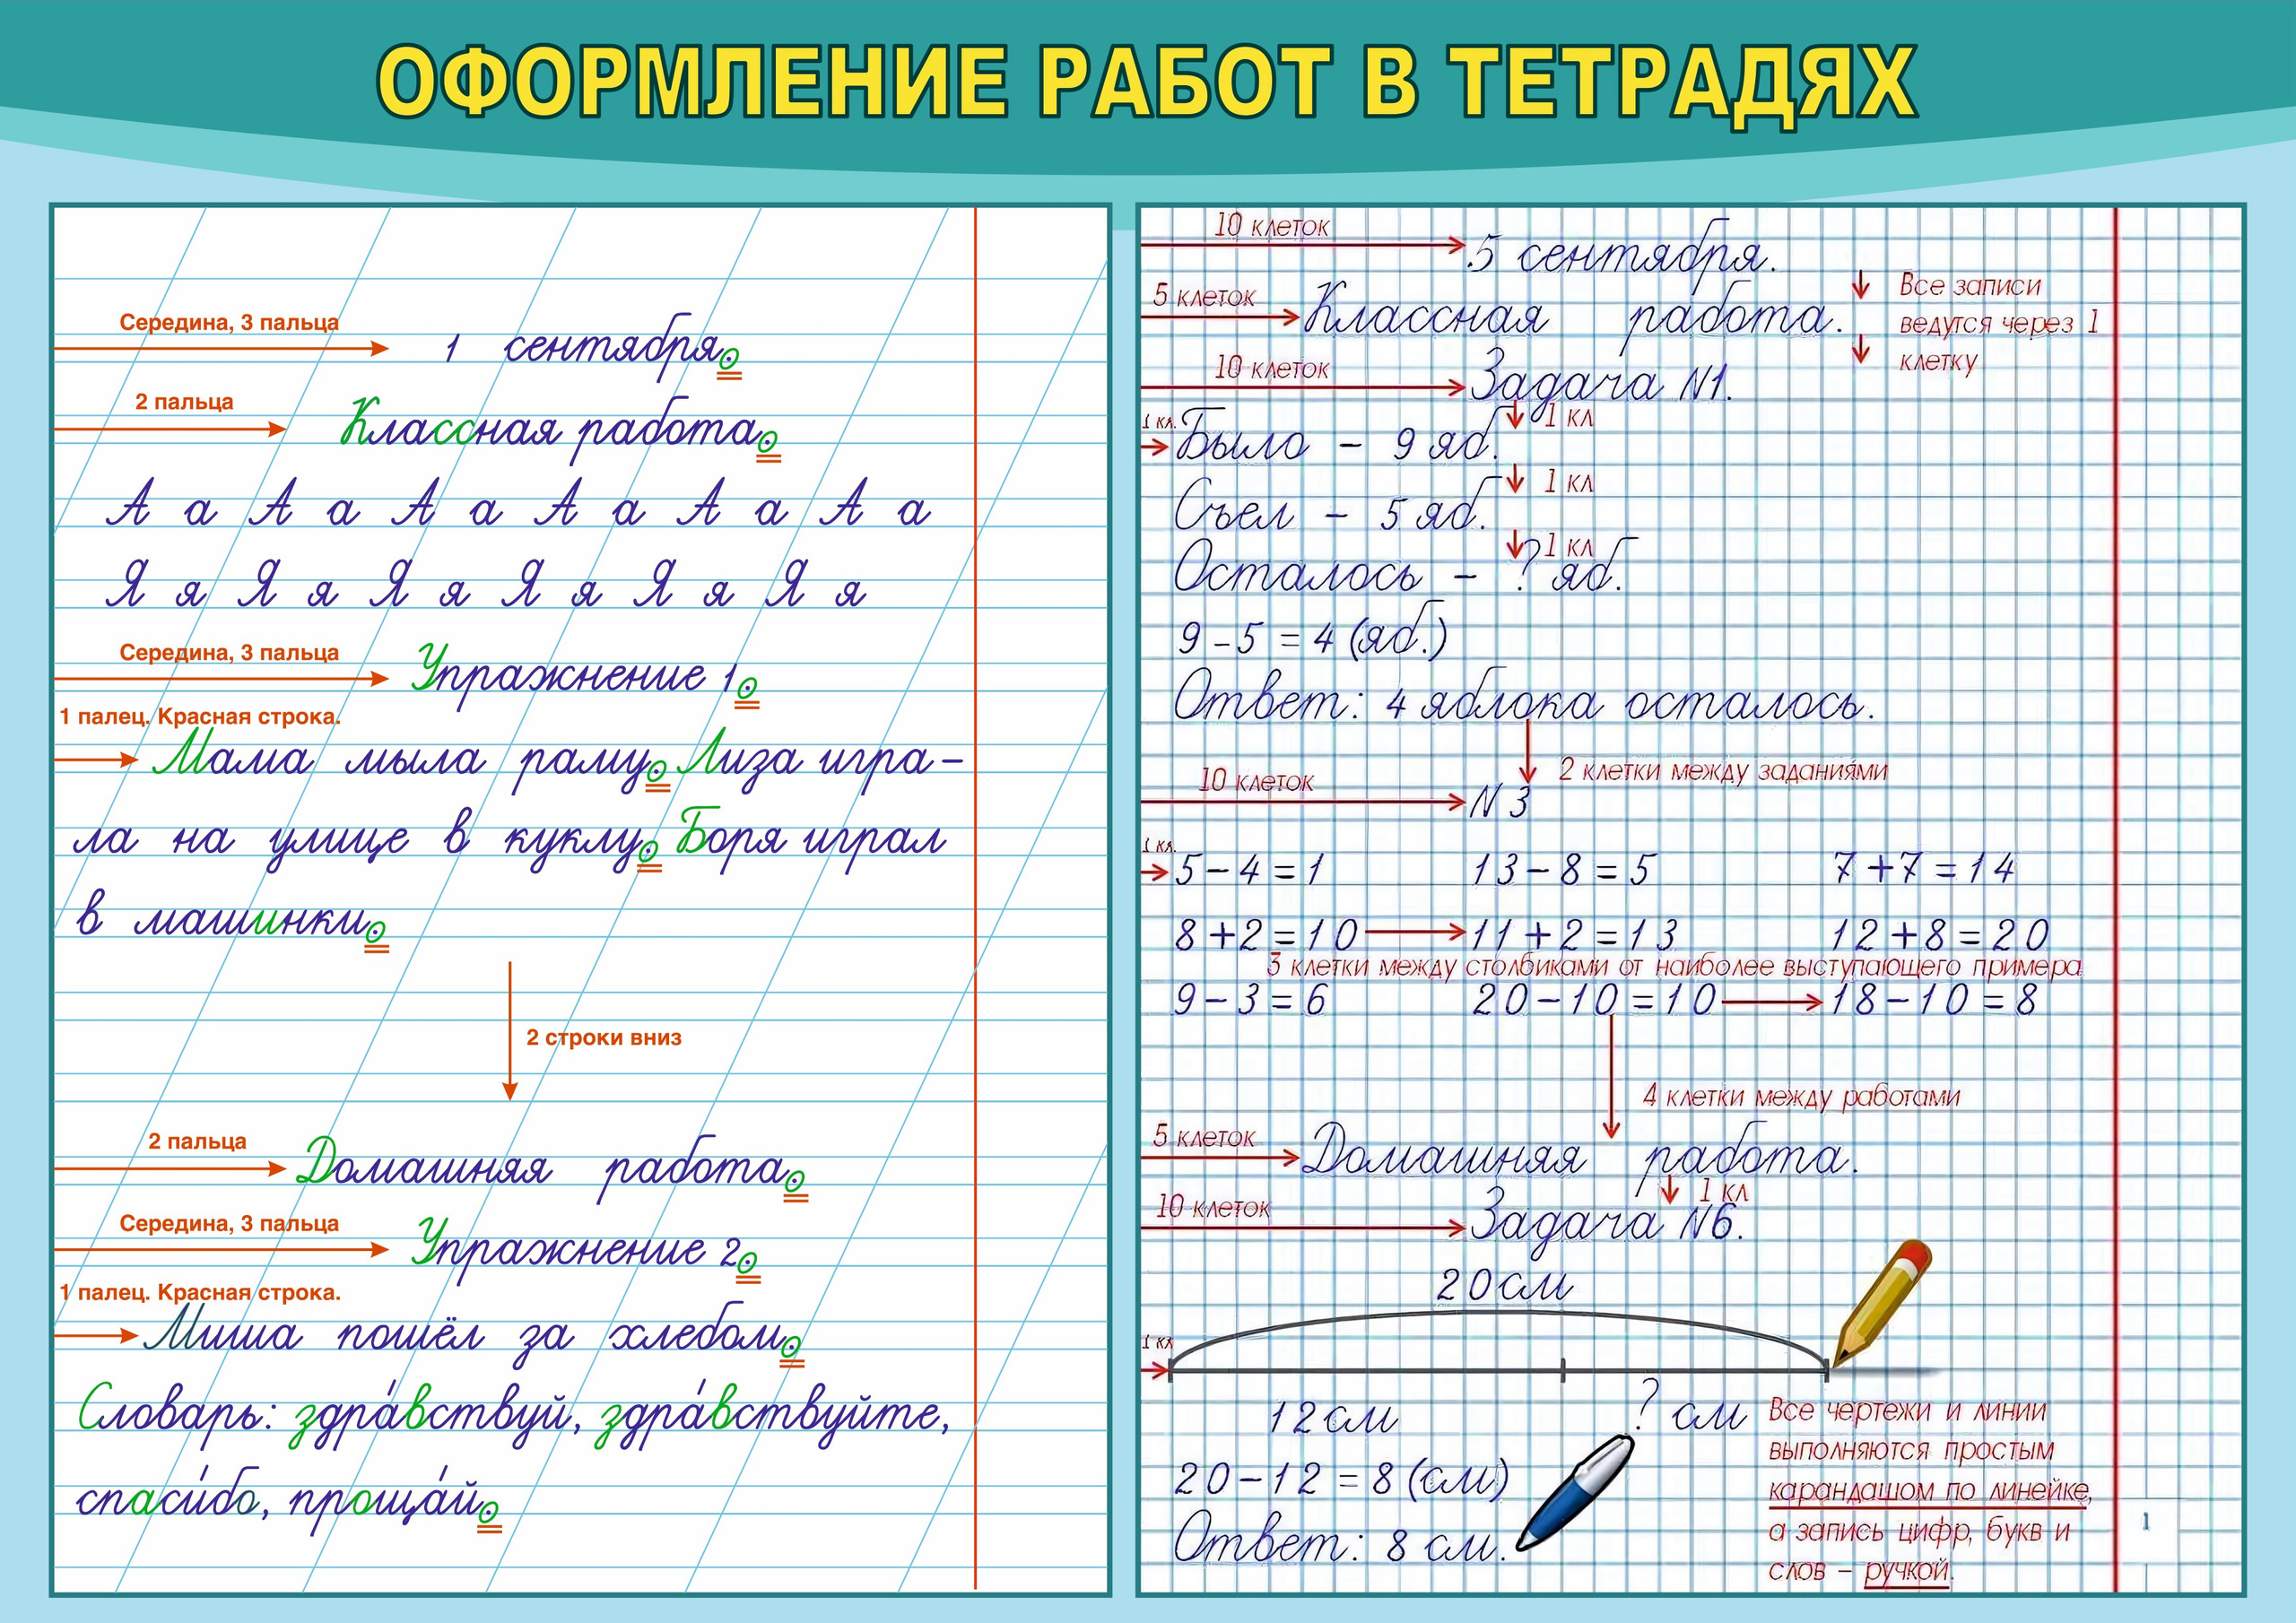 ОФОРМЛЕНИЕ РАБОТ В ТЕТРАДЯХ
Середина, 3 пальца
1 сентября.
2 пальца
Классная работа.
А а А а А а А а А а А а
Я я Я я Я я Я я Я я Я я
Середина, 3 пальца
Упражнение 1.
1 палец. Красная строка.
Мама мыла раму. Лиза игра-
ла на улице в куклу. Боря играл
в машинки.
2 строки вниз
2 пальца
Домашняя работа.
Середина, 3 пальца
Упражнение 2.
1 палец. Красная строка.
Миша пошёл за хлебом.
Словарь: здра́вствуй, здра́вствуйте,
спаси́бо, проща́й.
10 клеток
5 сентября.
5 клеток
Классная работа.
Все записи
ведутся через 1
клетку
10 клеток
Задача №1.
1 кл
1 кл.
Было - 9 яб.
1 кл
Съел - 5 яб.
1 кл
Осталось - ? яб.
9-5=4 (яб.)
Ответ: 4 яблока осталось.
2 клетки между заданиями
10 клеток
№3
1 кл.
5-4=1 13-8=5 7+7=14
8+2=10 11+2=13 12+8=20
3 клетки между столбиками от наиболее выступающего примера
9-3=6 20-10=10 18-10=8
4 клетки между работами
5 клеток
Домашняя работа.
1 кл
10 клеток
Задача №6.
20см
1 кл
12см ? см
20-12=8 (см)
Ответ: 8 см.
Все чертежи и линии
выполняются простым
карандашом по линейке,
а запись цифр, букв и
слов - ручкой.
1